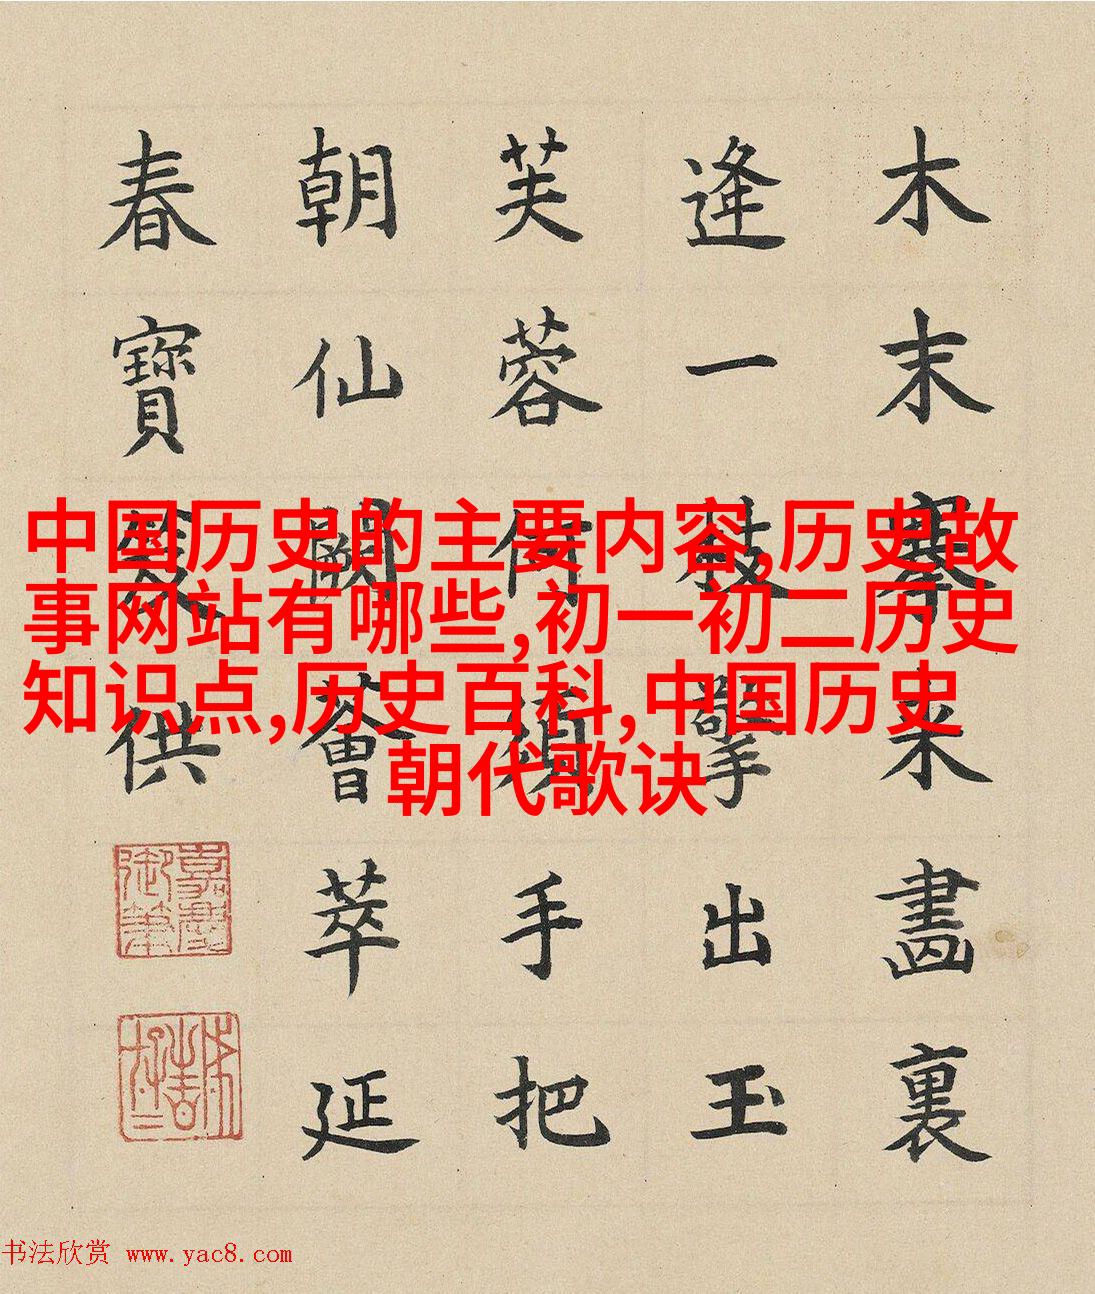 中国历史的主要内容,历史故
事网站有哪些,初一初二历史
知识点,历史百科,中国历史
朝代歌诀
木末搴来畫裏
逢一枝擎出玉
芙蓉何湏手把
朝仙闕薈萃延
春寶笈供
嘉慶
御筆
书法欣赏 www.yac8.com